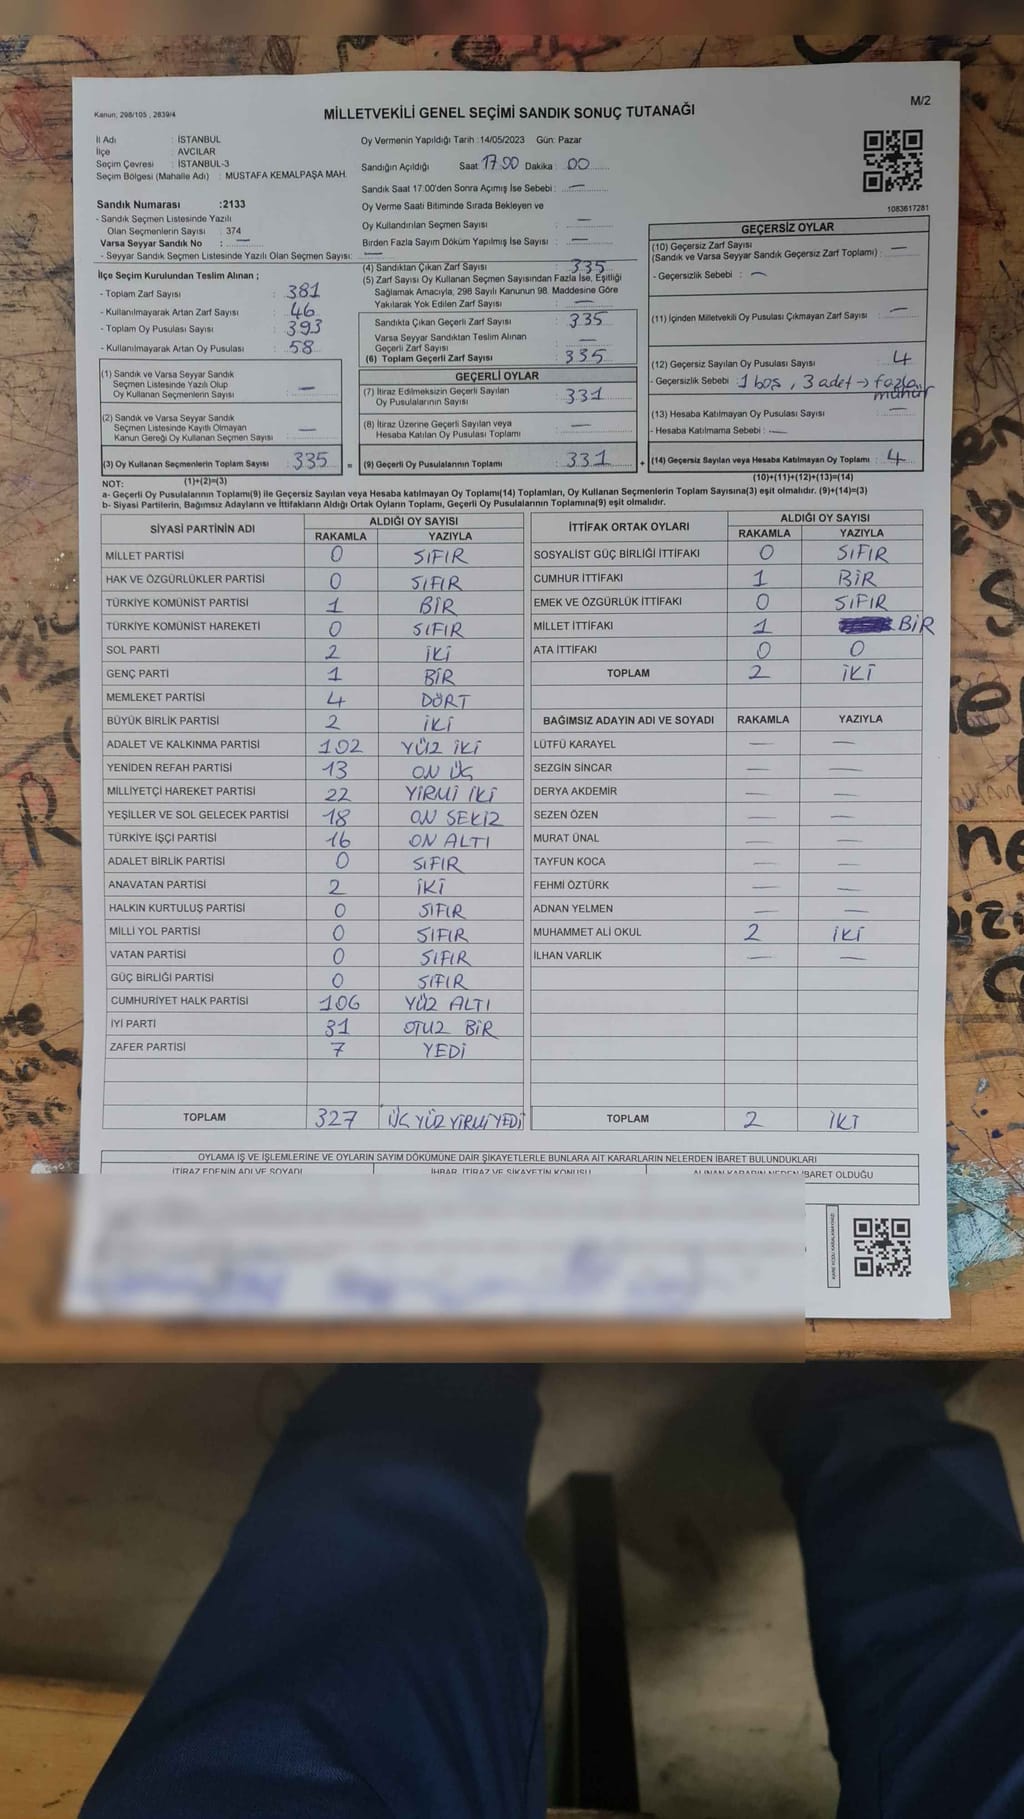 M/2
Kanun, 298/105 , 2839/4
MİLLETVEKİLİ GENEL SEÇİMİ SANDIK SONUÇ TUTANAĞI
İl Adı : İSTANBUL
İlçe : AVCILAR
Seçim Çevresi : İSTANBUL-3
Seçim Bölgesi (Mahalle Adı) : MUSTAFA KEMALPAŞA MAH.
Oy Vermenin Yapıldığı Tarih :14/05/2023 Gün: Pazar
Sandığın Açıldığı Saat 17.00 Dakika : 00
Sandık Saat 17:00'den Sonra Açımış İse Sebebi : —
Oy Verme Saati Bitiminde Sırada Bekleyen ve
Oy Kullandırılan Seçmen Sayısı —
Birden Fazla Sayım Döküm Yapılmış İse Sayısı : —
1083617281
Sandık Numarası :2133
- Sandık Seçmen Listesinde Yazılı
Olan Seçmenlerin Sayısı : 374
Varsa Seyyar Sandık No : —
- Seyyar Sandık Seçmen Listesinde Yazılı Olan Seçmen Sayısı: —
İlçe Seçim Kurulundan Teslim Alınan ;
- Toplam Zarf Sayısı : 381
- Kullanılmayarak Artan Zarf Sayısı : 46
- Toplam Oy Pusulası Sayısı : 393
- Kullanılmayarak Artan Oy Pusulası : 58
(1) Sandık ve Varsa Seyyar Sandık
Seçmen Listesinde Yazılı Olup
Oy Kullanan Seçmenlerin Sayısı : —
(2) Sandık ve Varsa Seyyar Sandık
Seçmen Listesinde Kayıtlı Olmayan
Kanun Gereği Oy Kullanan Seçmen Sayısı : —
(3) Oy Kullanan Seçmenlerin Toplam Sayısı : 335 =
(1)+(2)=(3)
(4) Sandıktan Çıkan Zarf Sayısı : 335
(5) Zarf Sayısı Oy Kullanan Seçmen Sayısından Fazla İse, Eşitliği
Sağlamak Amacıyla, 298 Sayılı Kanunun 98. Maddesine Göre
Yakılarak Yok Edilen Zarf Sayısı : —
Sandıkta Çıkan Geçerli Zarf Sayısı : 335
Varsa Seyyar Sandıktan Teslim Alınan
Geçerli Zarf Sayısı : —
(6) Toplam Geçerli Zarf Sayısı : 335
GEÇERLİ OYLAR
(7) İtiraz Edilmeksizin Geçerli Sayılan
Oy Pusulalarının Sayısı : 331
(8) İtiraz Üzerine Geçerli Sayılan veya
Hesaba Katılan Oy Pusulası Toplamı : —
(9) Geçerli Oy Pusulalarının Toplamı : 331 +
GEÇERSİZ OYLAR
(10) Geçersiz Zarf Sayısı
(Sandık ve Varsa Seyyar Sandık Geçersiz Zarf Toplamı) : —
- Geçersizlik Sebebi : —
(11) İçinden Milletvekili Oy Pusulası Çıkmayan Zarf Sayısı : —
(12) Geçersiz Sayılan Oy Pusulası Sayısı : 4
- Geçersizlik Sebebi : 1 boş , 3 adet → fazla
mühür
(13) Hesaba Katılmayan Oy Pusulası Sayısı : —
- Hesaba Katılmama Sebebi : —
(14) Geçersiz Sayılan veya Hesaba Katılmayan Oy Toplamı : 4
(10)+(11)+(12)+(13)=(14)
NOT:
a- Geçerli Oy Pusulalarının Toplamı(9) ile Geçersiz Sayılan veya Hesaba katılmayan Oy Toplamı(14) Toplamları, Oy Kullanan Seçmenlerin Toplam Sayısına(3) eşit olmalıdır. (9)+(14)=(3)
b- Siyasi Partilerin, Bağımsız Adayların ve İttifakların Aldığı Ortak Oyların Toplamı, Geçerli Oy Pusulalarının Toplamına(9) eşit olmalıdır.
SİYASİ PARTİNİN ADI ALDIĞI OY SAYISI
RAKAMLA YAZIYLA
MİLLET PARTİSİ 0 SIFIR
HAK VE ÖZGÜRLÜKLER PARTİSİ 0 SIFIR
TÜRKİYE KOMÜNİST PARTİSİ 1 BİR
TÜRKİYE KOMÜNİST HAREKETİ 0 SIFIR
SOL PARTİ 2 İKİ
GENÇ PARTİ 1 BİR
MEMLEKET PARTİSİ 4 DÖRT
BÜYÜK BİRLİK PARTİSİ 2 İKİ
ADALET VE KALKINMA PARTİSİ 102 YÜZ İKİ
YENİDEN REFAH PARTİSİ 13 ON ÜÇ
MİLLİYETÇİ HAREKET PARTİSİ 22 YİRMİ İKİ
YEŞİLLER VE SOL GELECEK PARTİSİ 18 ON SEKİZ
TÜRKİYE İŞÇİ PARTİSİ 16 ON ALTI
ADALET BİRLİK PARTİSİ 0 SIFIR
ANAVATAN PARTİSİ 2 İKİ
HALKIN KURTULUŞ PARTİSİ 0 SIFIR
MİLLİ YOL PARTİSİ 0 SIFIR
VATAN PARTİSİ 0 SIFIR
GÜÇ BİRLİĞİ PARTİSİ 0 SIFIR
CUMHURİYET HALK PARTİSİ 106 YÜZ ALTI
İYİ PARTİ 31 OTUZ BİR
ZAFER PARTİSİ 7 YEDİ
TOPLAM 327 ÜÇ YÜZ YİRMİ YEDİ
İTTİFAK ORTAK OYLARI ALDIĞI OY SAYISI
RAKAMLA YAZIYLA
SOSYALİST GÜÇ BİRLİĞİ İTTİFAKI 0 SIFIR
CUMHUR İTTİFAKI 1 BİR
EMEK VE ÖZGÜRLÜK İTTİFAKI 0 SIFIR
MİLLET İTTİFAKI 1 BİR
ATA İTTİFAKI 0 0
TOPLAM 2 İKİ
BAĞIMSIZ ADAYIN ADI VE SOYADI RAKAMLA YAZIYLA
LÜTFÜ KARAYEL — —
SEZGİN SİNCAR — —
DERYA AKDEMİR — —
SEZEN ÖZEN — —
MURAT ÜNAL — —
TAYFUN KOCA — —
FEHMİ ÖZTÜRK — —
ADNAN YELMEN — —
MUHAMMET ALİ OKUL 2 İKİ
İLHAN VARLIK — —
TOPLAM 2 İKİ
OYLAMA İŞ VE İŞLEMLERİNE VE OYLARIN SAYIM DÖKÜMÜNE DAİR ŞİKAYETLERLE BUNLARA AİT KARARLARIN NELERDEN İBARET BULUNDUKLARI
İTİRAZ EDENİN ADI VE SOYADI İHBAR, İTİRAZ VE ŞİKAYETİN KONUSU ALINAN KARARIN NEDEN İBARET OLDUĞU